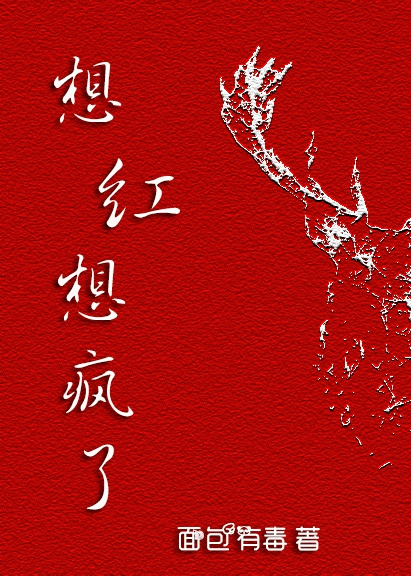 想红想疯了
面包有毒 著